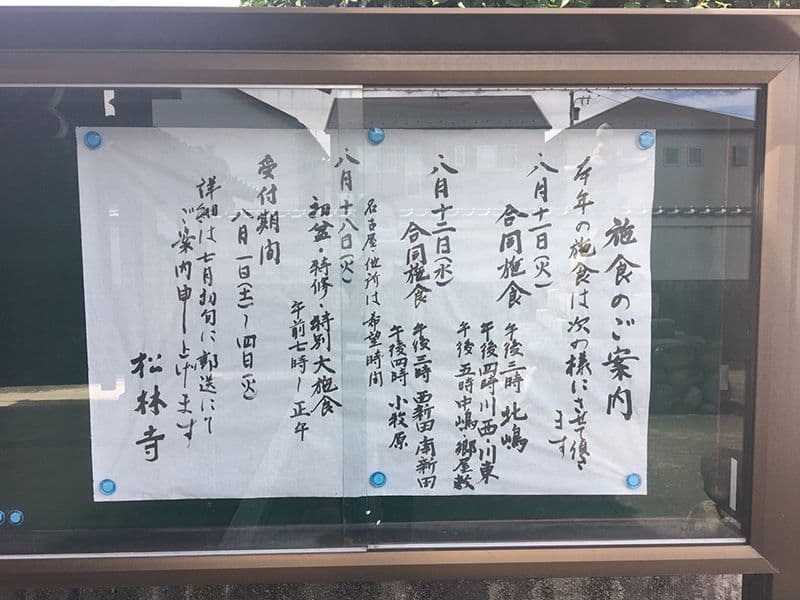 施食のご案内
本年の施食は次の様にさせて頂き
ます
八月十一日(火)
合同施食
午後三時 北嶋
午後四時 川西・川東
午後五時 中嶋・郷屋敷
八月十二日(水)
合同施食
午後三時 西新田 南新田
午後四時 小牧原
名古屋・他所は希望時間
八月十八日(火)
初盆・特修・特別大施食
午前七時〜正午
受付期間
八月一日(土)〜四日(火)
詳細は七月初旬に郵送にて
ご案内申し上げます
松林寺